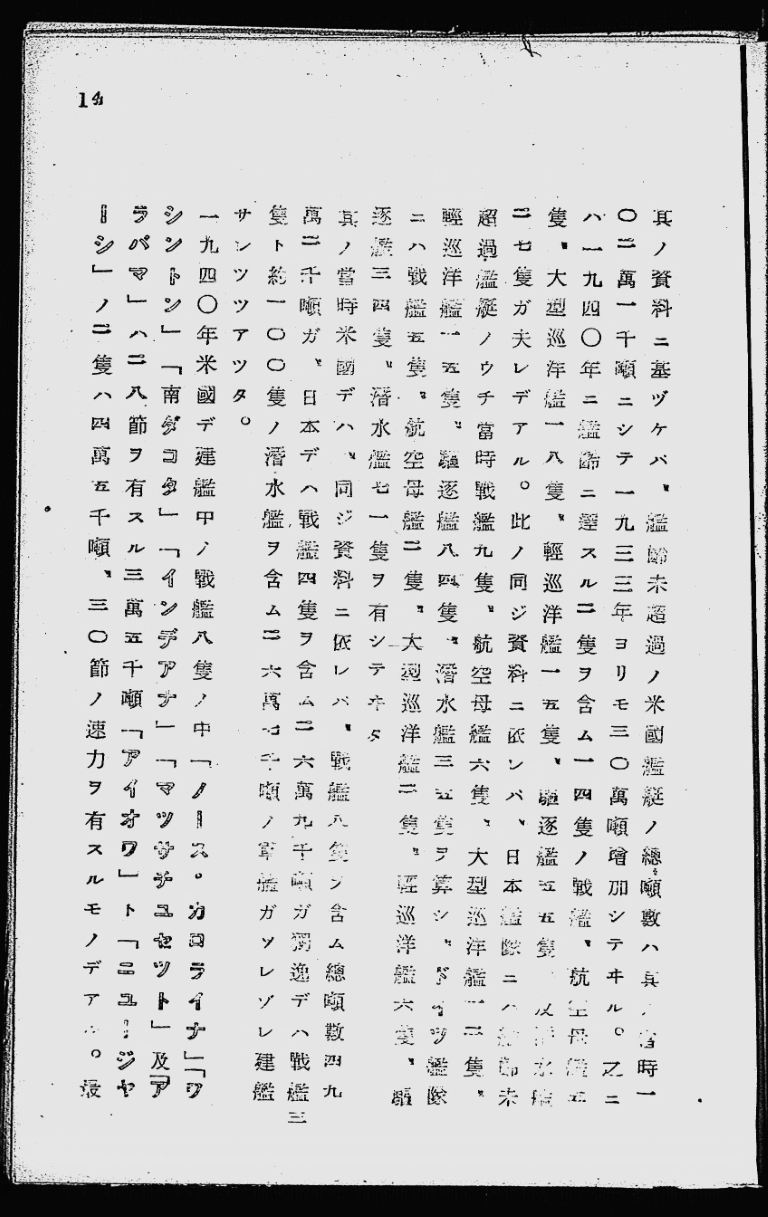 14
其ノ資料ニ基ヅケバ、艦齡未超過ノ米國艦艇ノ總噸數ハ其ノ當時一
〇二萬一千噸ニシテ一九三三年ヨリモ三〇萬噸增加シテヰル。之ニ
ハ一九四〇年ニ艦齡ニ達スル二隻ヲ含ム一四隻ノ戰艦、航空母艦五
隻、大型巡洋艦一八隻、輕巡洋艦一五隻、驅逐艦五五隻 及潛水艦
二七隻ガ夫レデアル。此ノ同ジ資料ニ依レバ、日本艦隊ニハ艦齡未
超過艦艇ノウチ當時戰艦九隻、航空母艦六隻、大型巡洋艦一二隻、
輕巡洋艦一五隻、驅逐艦八四隻、潛水艦三五隻ヲ算シ、ドイツ艦隊
ニハ戰艦五隻、航空母艦二隻、大型巡洋艦二隻、輕巡洋艦六隻、驅
逐艦三四隻、潛水艦七一隻ヲ有シテヰタ
其ノ當時米國デハ、同ジ資料ニ依レバ、戰艦八隻ヲ含ム總噸數四九
萬二千噸ガ、日本デハ戰艦四隻ヲ含ム二六萬九千噸ガ獨逸デハ戰艦三
隻ト約一〇〇隻ノ潛水艦ヲ含ム二六萬七千噸ノ軍艦ガソレゾレ建艦
サレツツアツタ。
一九四〇年米國デ建艦中ノ戰艦八隻ノ中「ノース。カロライナ」「ワ
シントン」「南ダコタ」「インデアナ」「マツサチユセツト」及「ア
ラバマ」ハ二八節ヲ有スル三萬五千噸「アイオワ」ト「ニユージヤ
ーシ」ノ二隻ハ四萬五千噸、三〇節ノ速力ヲ有スルモノデアル。最